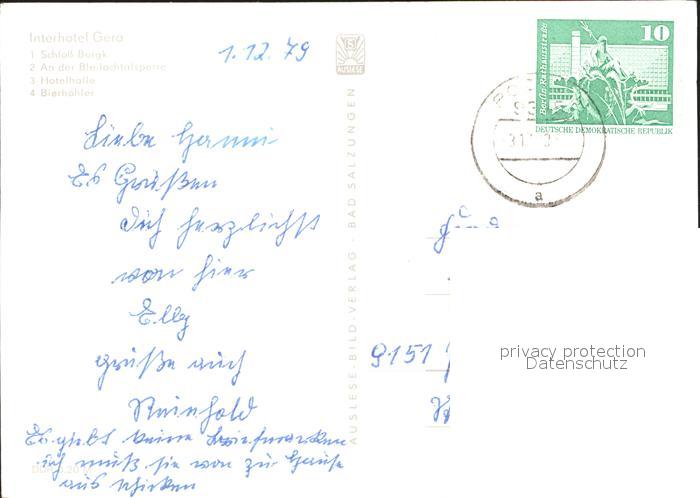 Interhotel Gera
1 Schloß Burgk
2 An der Bleilochtalsperre
3 Hotelhalle
4 Bierhöhler
1.12.79
AUSLESE
Liebe Hanni
Es Grüßen
Dich herzlichst
von hier
Elly
grüße auch
Reinhold
Es giebt keine Briefmarken
ich muß sie von zu Hause
aus schicken
AUSLESE-BILD-VERLAG · BAD SALZUNGEN
10
Berlin, Rathausstraße
DEUTSCHE DEMOKRATISCHE REPUBLIK
a
9151
privacy protection
Datenschutz